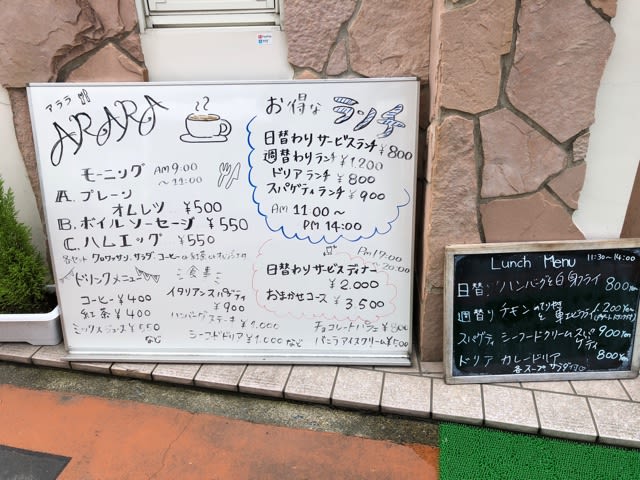 アララ
ARARA
モーニング AM 9:00
～ 11:00
A. プレーン
オムレツ ¥500
B. ボイルソーセージ ¥550
C. ハムエッグ ¥550
各セット クロワッサン、サラダ、コーヒー
ドリンクメニュー
コーヒー ¥400
紅茶 ¥400
ミックスジュース ¥550
など
食事
イタリアンスパゲティ
¥900
ハンバーグステーキ
¥1.000
シーフードドリア ¥1.000 など
お得な ランチ
日替わりサービスランチ ¥800
週替わりランチ ¥1.200
ドリアランチ ¥800
スパゲティランチ ¥900
AM 11:00～
PM 14:00
PM 17:00
20:00
日替わりサービスディナー
¥2.000
おまかせコース
¥3.500
チョコレートパフェ ¥800
バニラアイスクリーム ¥500
Lunch Menu 11:30～14:00
日替り ハンバーグと白身フライ 800Yen
週替り チキン と 1.200Yen
スパゲティ シーフードクリームスパ 900Yen
ゲティ
ドリア カレードリア 800Yen
各スープ サラダ